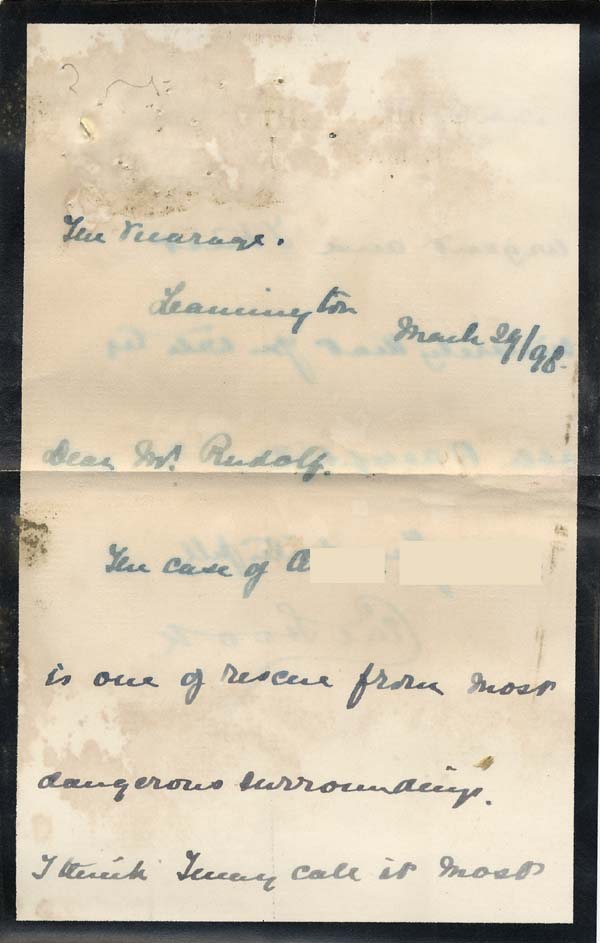 The Vicarage.
Leamington
March 29/98.
Dear Mr. Rudolf.
The case of A
is one of rescue from most
dangerous surroundings.
I think I may call it most